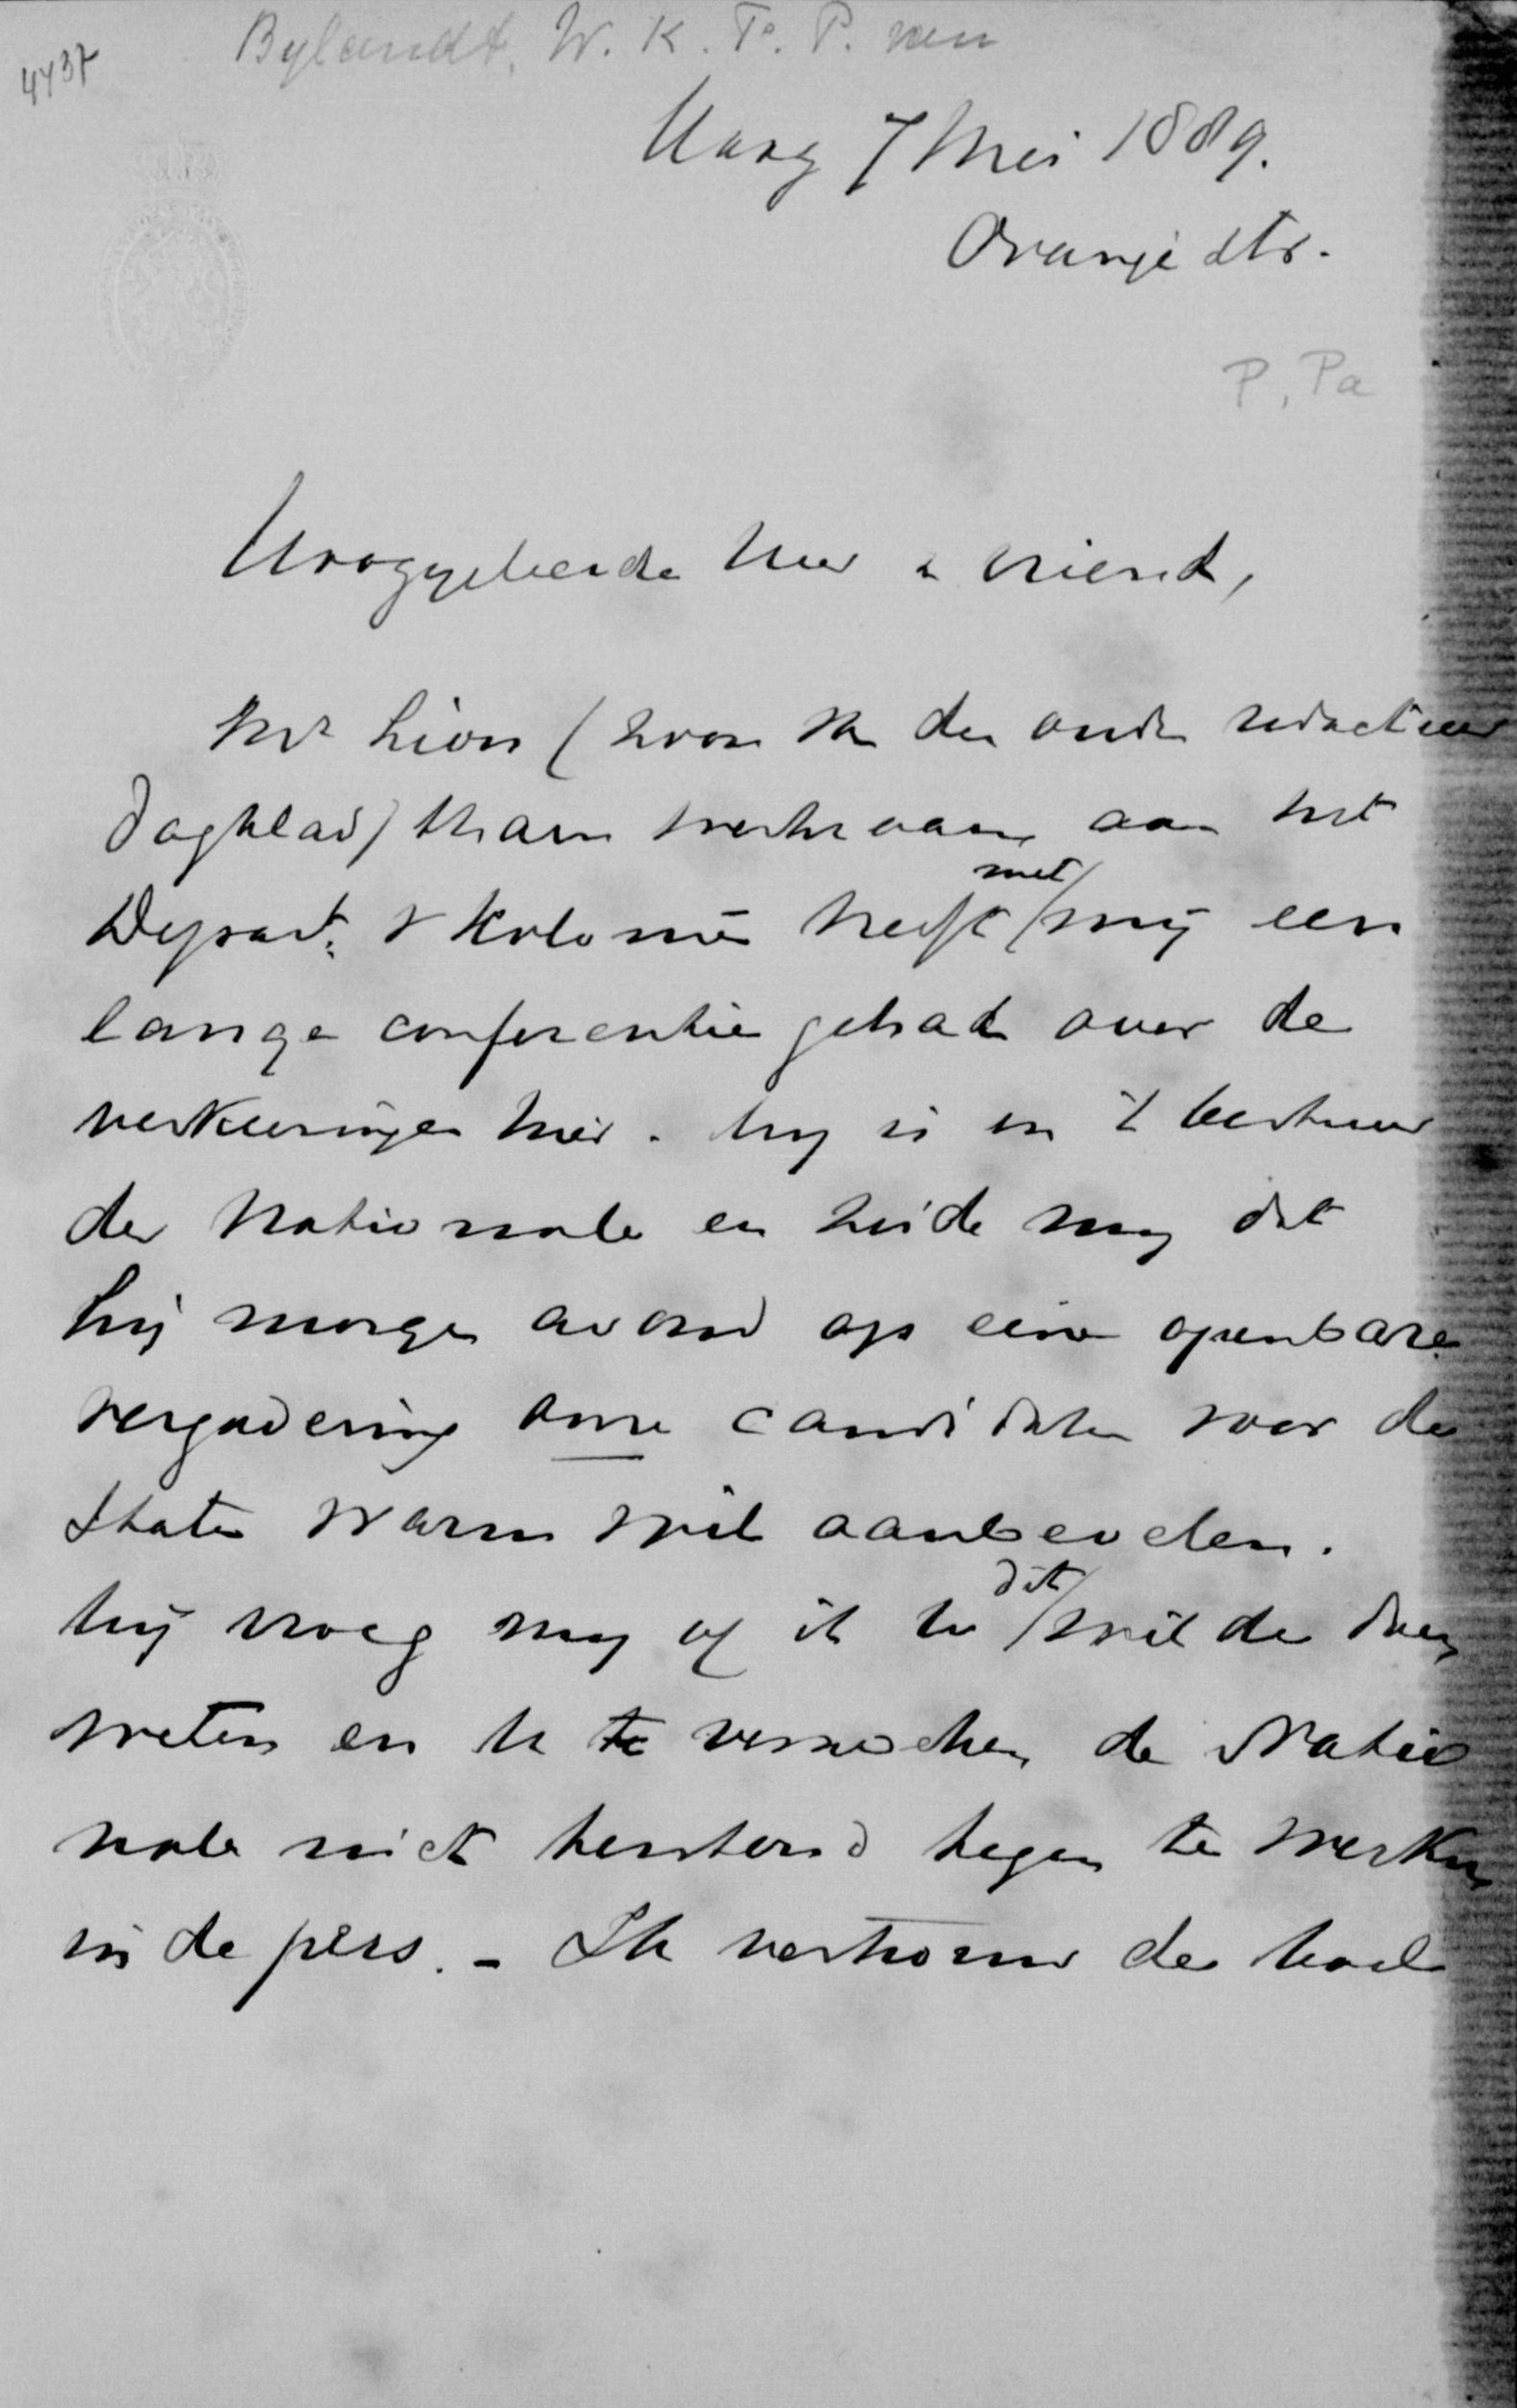 4437
Bylandt, W. K. F. P. van
Haag 7 Mei 1889.
Oranje str.
P. Pa
Hooggeleerde Heer & vriend,
Mr Lion (zoon v. den ouden redacteur
Dagblad) thans werkzaam aan het
Depart. v Koloniën heeft met mij een
lange conferentie gehad over de
verkiezingen hier. Hij is in 't bestuur
der Nationale en zeide mij dat
hij morgen avond op eene openbare
vergadering onze candidaten voor de
Staten warm wil aanbevelen.
hij vroeg mij of ik u dit wilde doen
weten en u te verzoeken de Natio
nale niet bestend tegen te werken
in de pers. - Ik vertrouw de boel